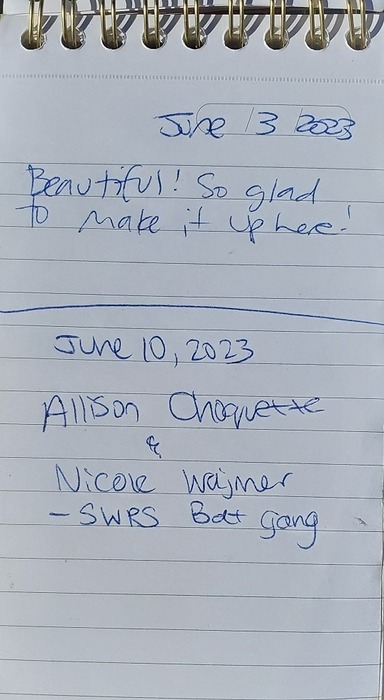 June 13 2023
Beautiful! So glad
to make it up here!
June 10, 2023
Allison Choquette
&
Nicole Wajmer
- SWRS Bat Gang